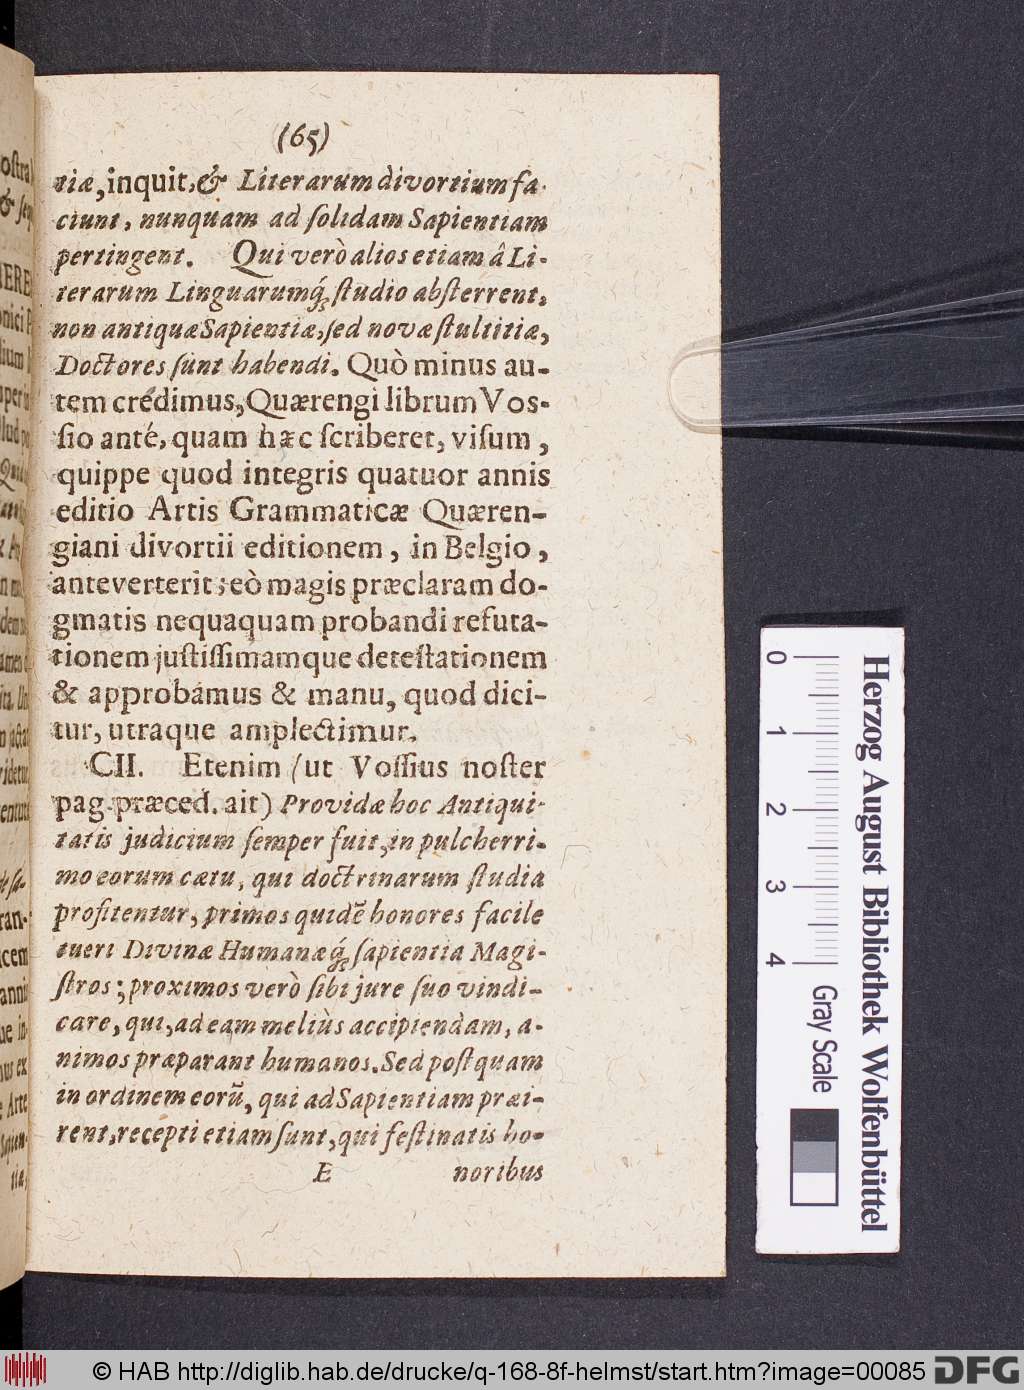 (65)
tiæ, inquit, & Literarum divortium fa-
ciunt, nunquam ad ſolidam Sapientiam
pertingent. Qui verò alios etiam â Li-
terarum Linguarumq́; ſtudio abſterrent,
non antiquæ Sapientiæ, ſed novæ ſtultitiæ,
Doctores ſunt habendi. Quò minus au-
tem crédimus, Quærengi librum Vos-
ſio anté, quam hæc ſcriberet, viſum,
quippe quod integris quatuor annis
editio Artis Grammaticæ Quæren-
giani divortii editionem, in Belgio,
anteverterit; eò magis præclaram do-
gmatis nequaquam probandi refuta-
tionem juſtiſſimamque deteſtationem
& approbamus & manu, quod dici-
tur, utraque amplectimur.
CII. Etenim (ut Voſſius noſter
pag. præced. ait) Providæ hoc Antiqui-
tatis judicium ſemper fuit, in pulcherri-
mo eorum cætu, qui doctrinarum ſtudia
profitentur, primos quidẽ honores facile
tueri Divinæ Humanæq́; ſapientia Magi-
ſtros; proximos verò ſibi jure ſuo vindi-
care, qui, ad eam meliùs accipiendam, a-
nimos præparant humanos. Sed poſtquam
in ordinem eorũ, qui ad Sapientiam præi-
rent, recepti etiam ſunt, qui feſtinatis ho-
E noribus
Herzog August Bibliothek Wolfenbüttel
0 1 2 3 4 Gray Scale
© HAB http://diglib.hab.de/drucke/q-168-8f-helmst/start.htm?image=00085
DFG